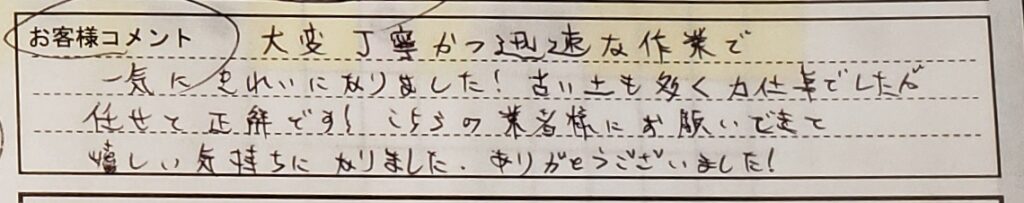 お客様コメント 大変丁寧かつ迅速な作業で
一気にきれいになりました！古い土も多く力仕事でしたが
任せて正解です！こちらの業者様にお願いできて
嬉しい気持ちになりました．ありがとうございました！